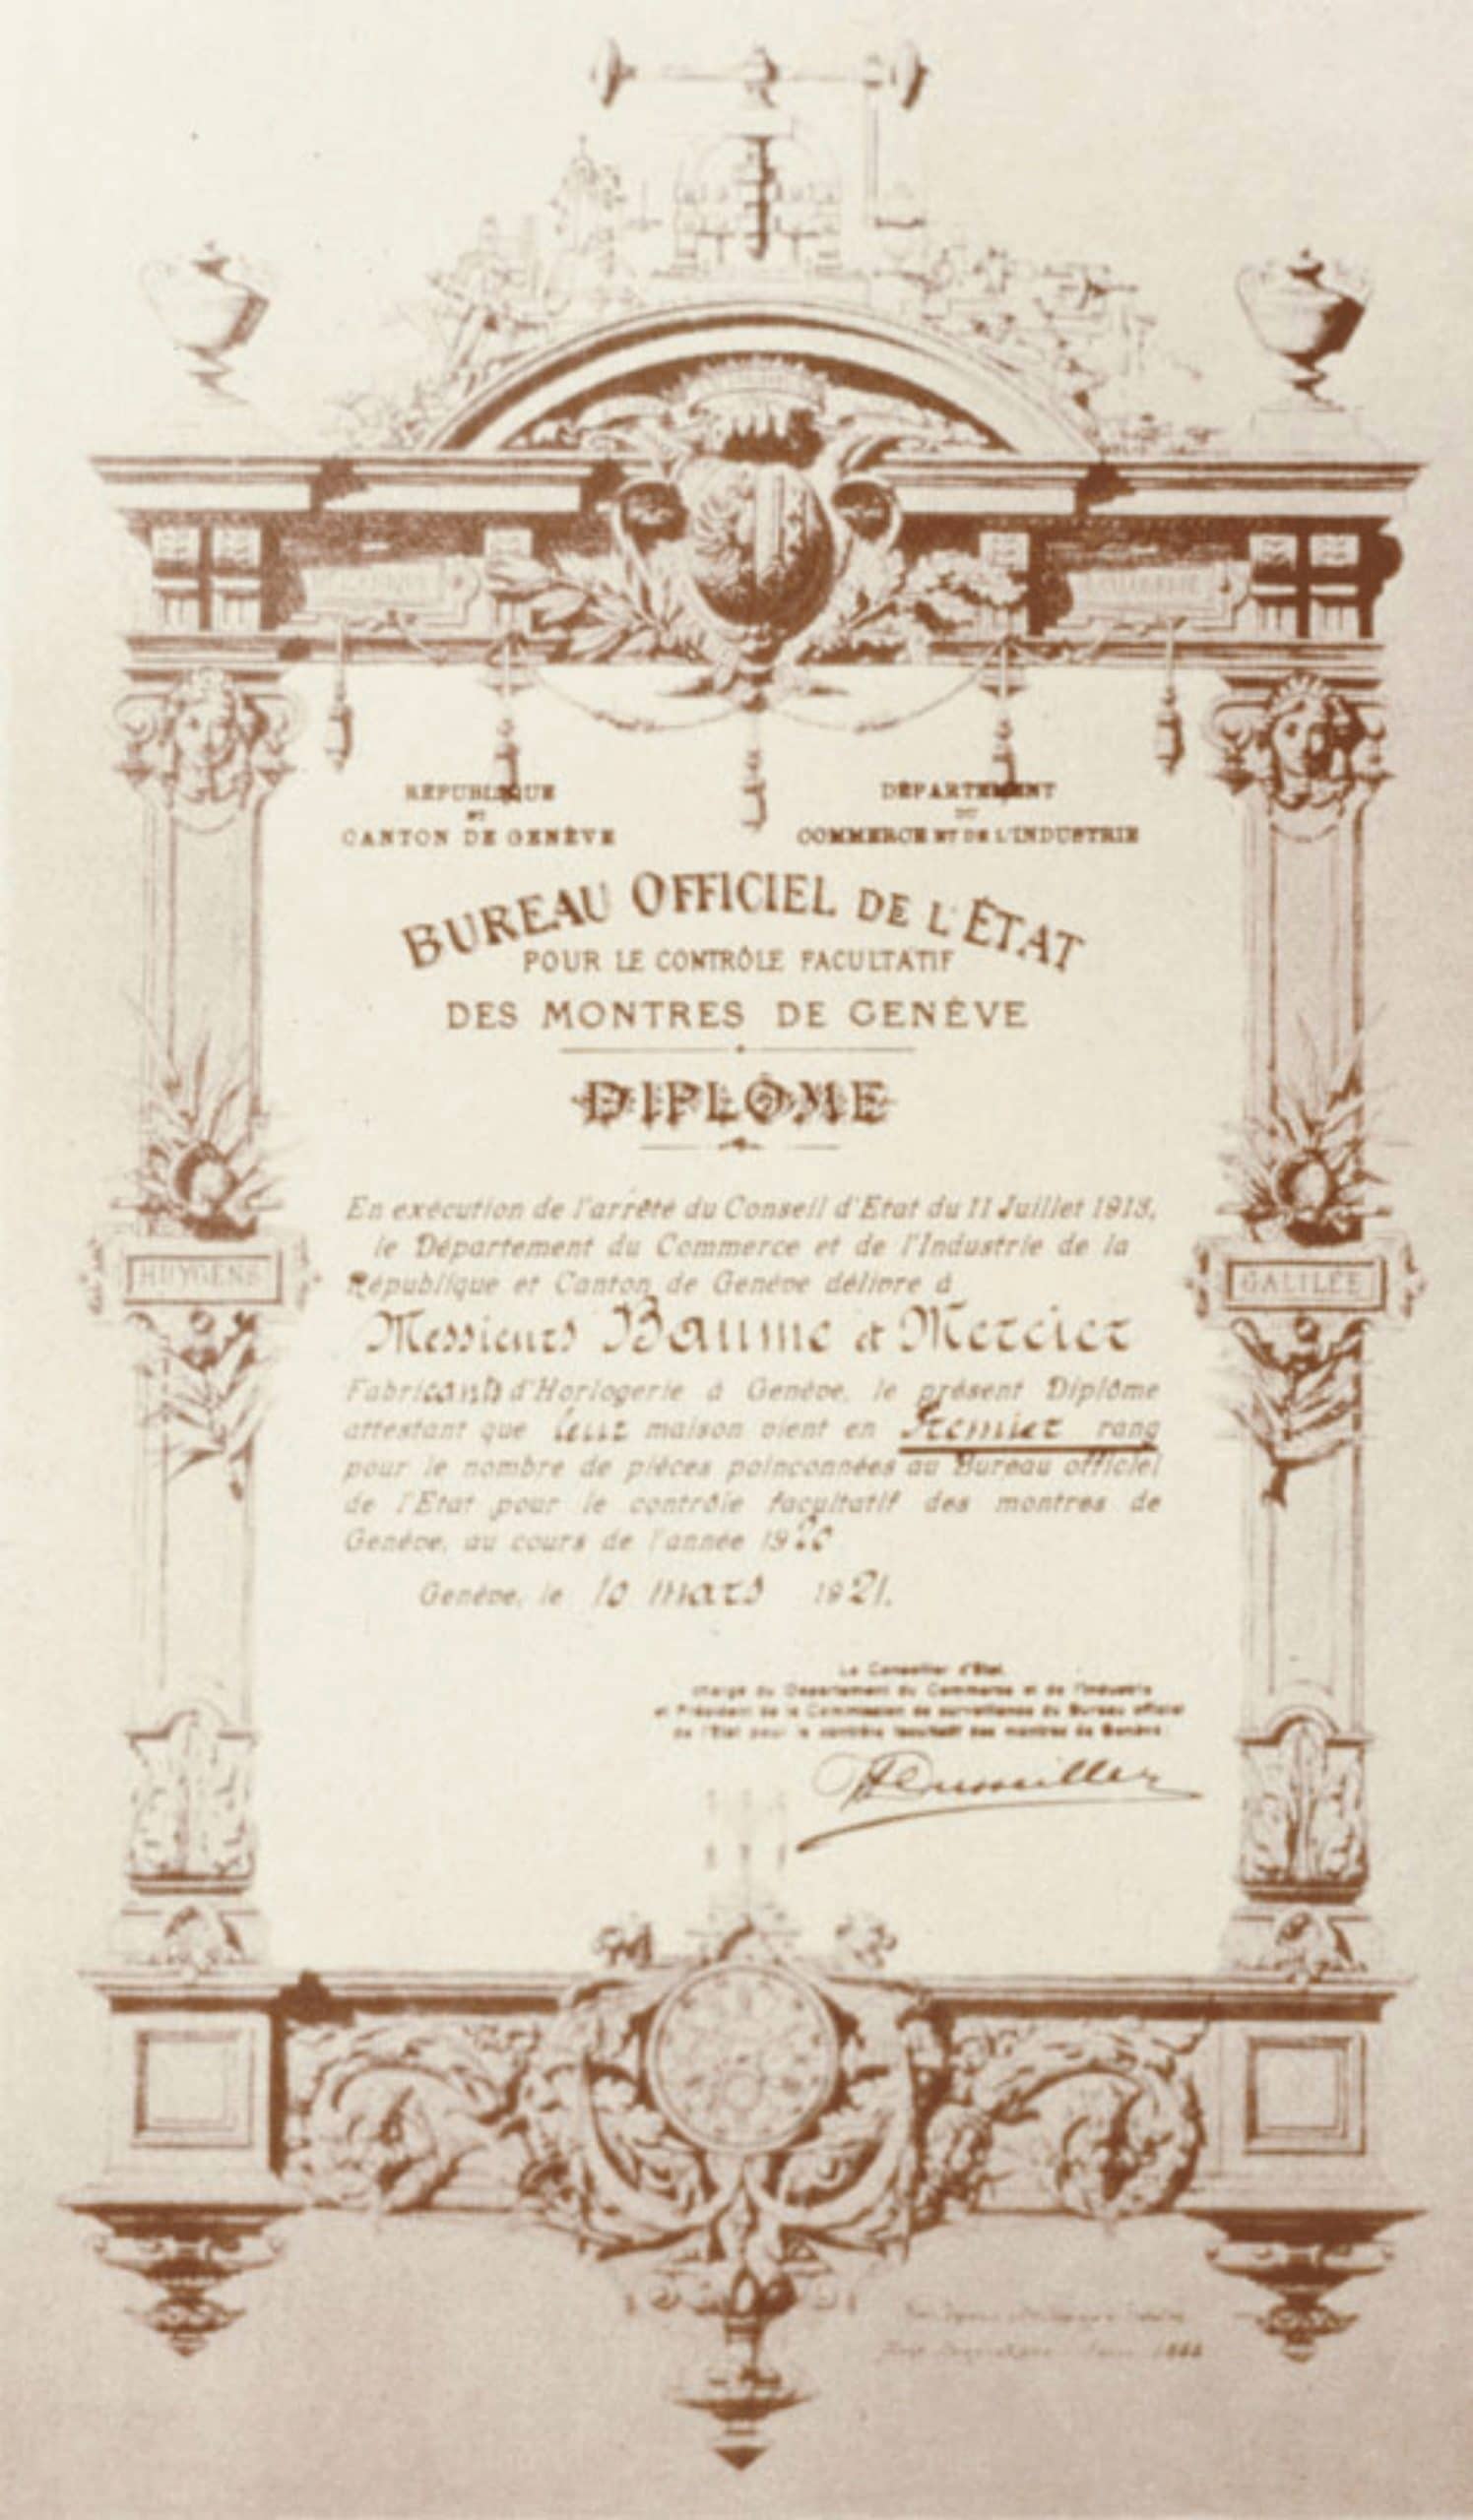 RÉPUBLIQUE
ET
CANTON DE GENÈVE
DÉPARTEMENT
DU
COMMERCE ET DE L'INDUSTRIE
BUREAU OFFICIEL DE L'ÉTAT
POUR LE CONTRÔLE FACULTATIF
DES MONTRES DE GENÈVE
DIPLÔME
En exécution de l'arrêté du Conseil d'Etat du 11 Juillet 1913,
le Département du Commerce et de l'Industrie de la
République et Canton de Genève délivre à
Messieurs Baume & Mercier
Fabricants d'Horlogerie à Genève, le présent Diplôme
attestant que leur maison vient en Premier rang
pour le nombre de pièces poinçonnées au Bureau officiel
de l'Etat pour le contrôle facultatif des montres de
Genève, au cours de l'année 1920
Genève, le 10 mars 1921.
HUYGENS
GALILÉE
Le Conseiller d'Etat,
chargé du Département du Commerce et de l'Industrie
et Président de la Commission de surveillance du Bureau officiel
de l'Etat pour le contrôle facultatif des montres de Genève